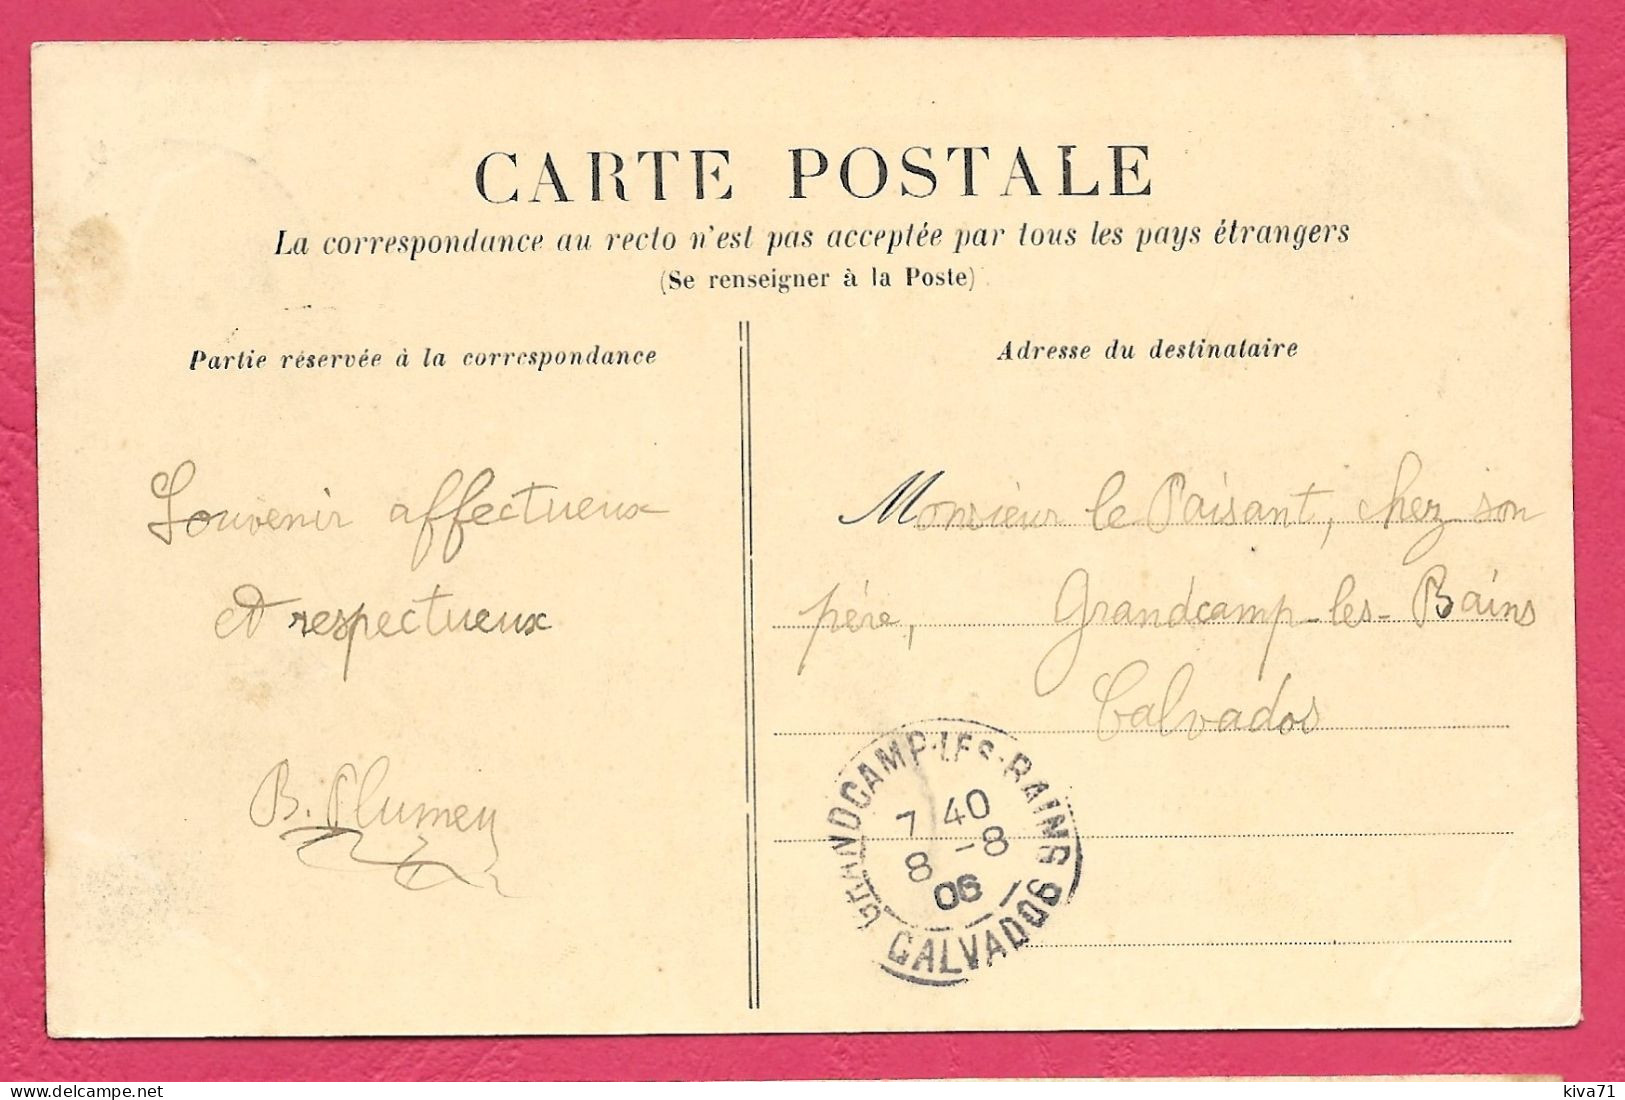 CARTE POSTALE
La correspondance au recto n'est pas acceptée par tous les pays étrangers
(Se renseigner à la Poste)
Partie réservée à la correspondance
Souvenir affectueux
et respectueux
B. Plumey
Adresse du destinataire
Monsieur le Paisant, chez son
père, Grandcamp-les-Bains
Calvados
GRANDCAMP-LES-BAINS
7 40
8 - 8
06
CALVADOS
delcampe.net
kiva71